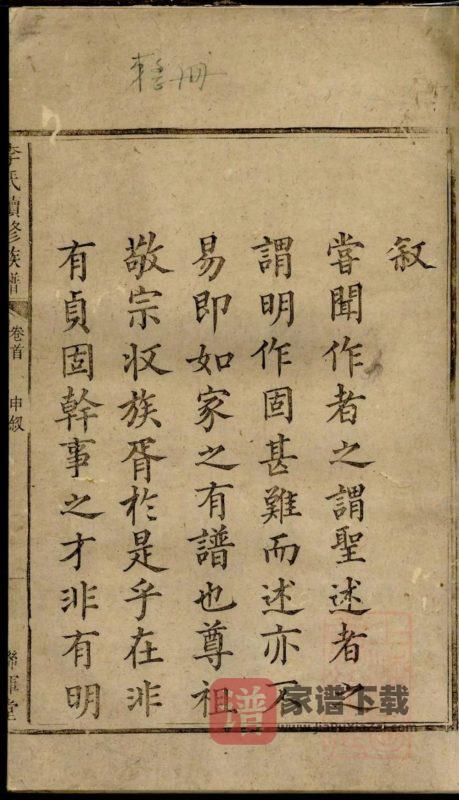 叙
嘗聞作者之謂聖述者之
謂明作固甚難而述亦不
易即如家之有譜也尊祖
敬宗収族胥於是乎在非
有貞固幹事之才非有明
李氏續修族譜
卷首
申叙
堂
谱
家谱下载